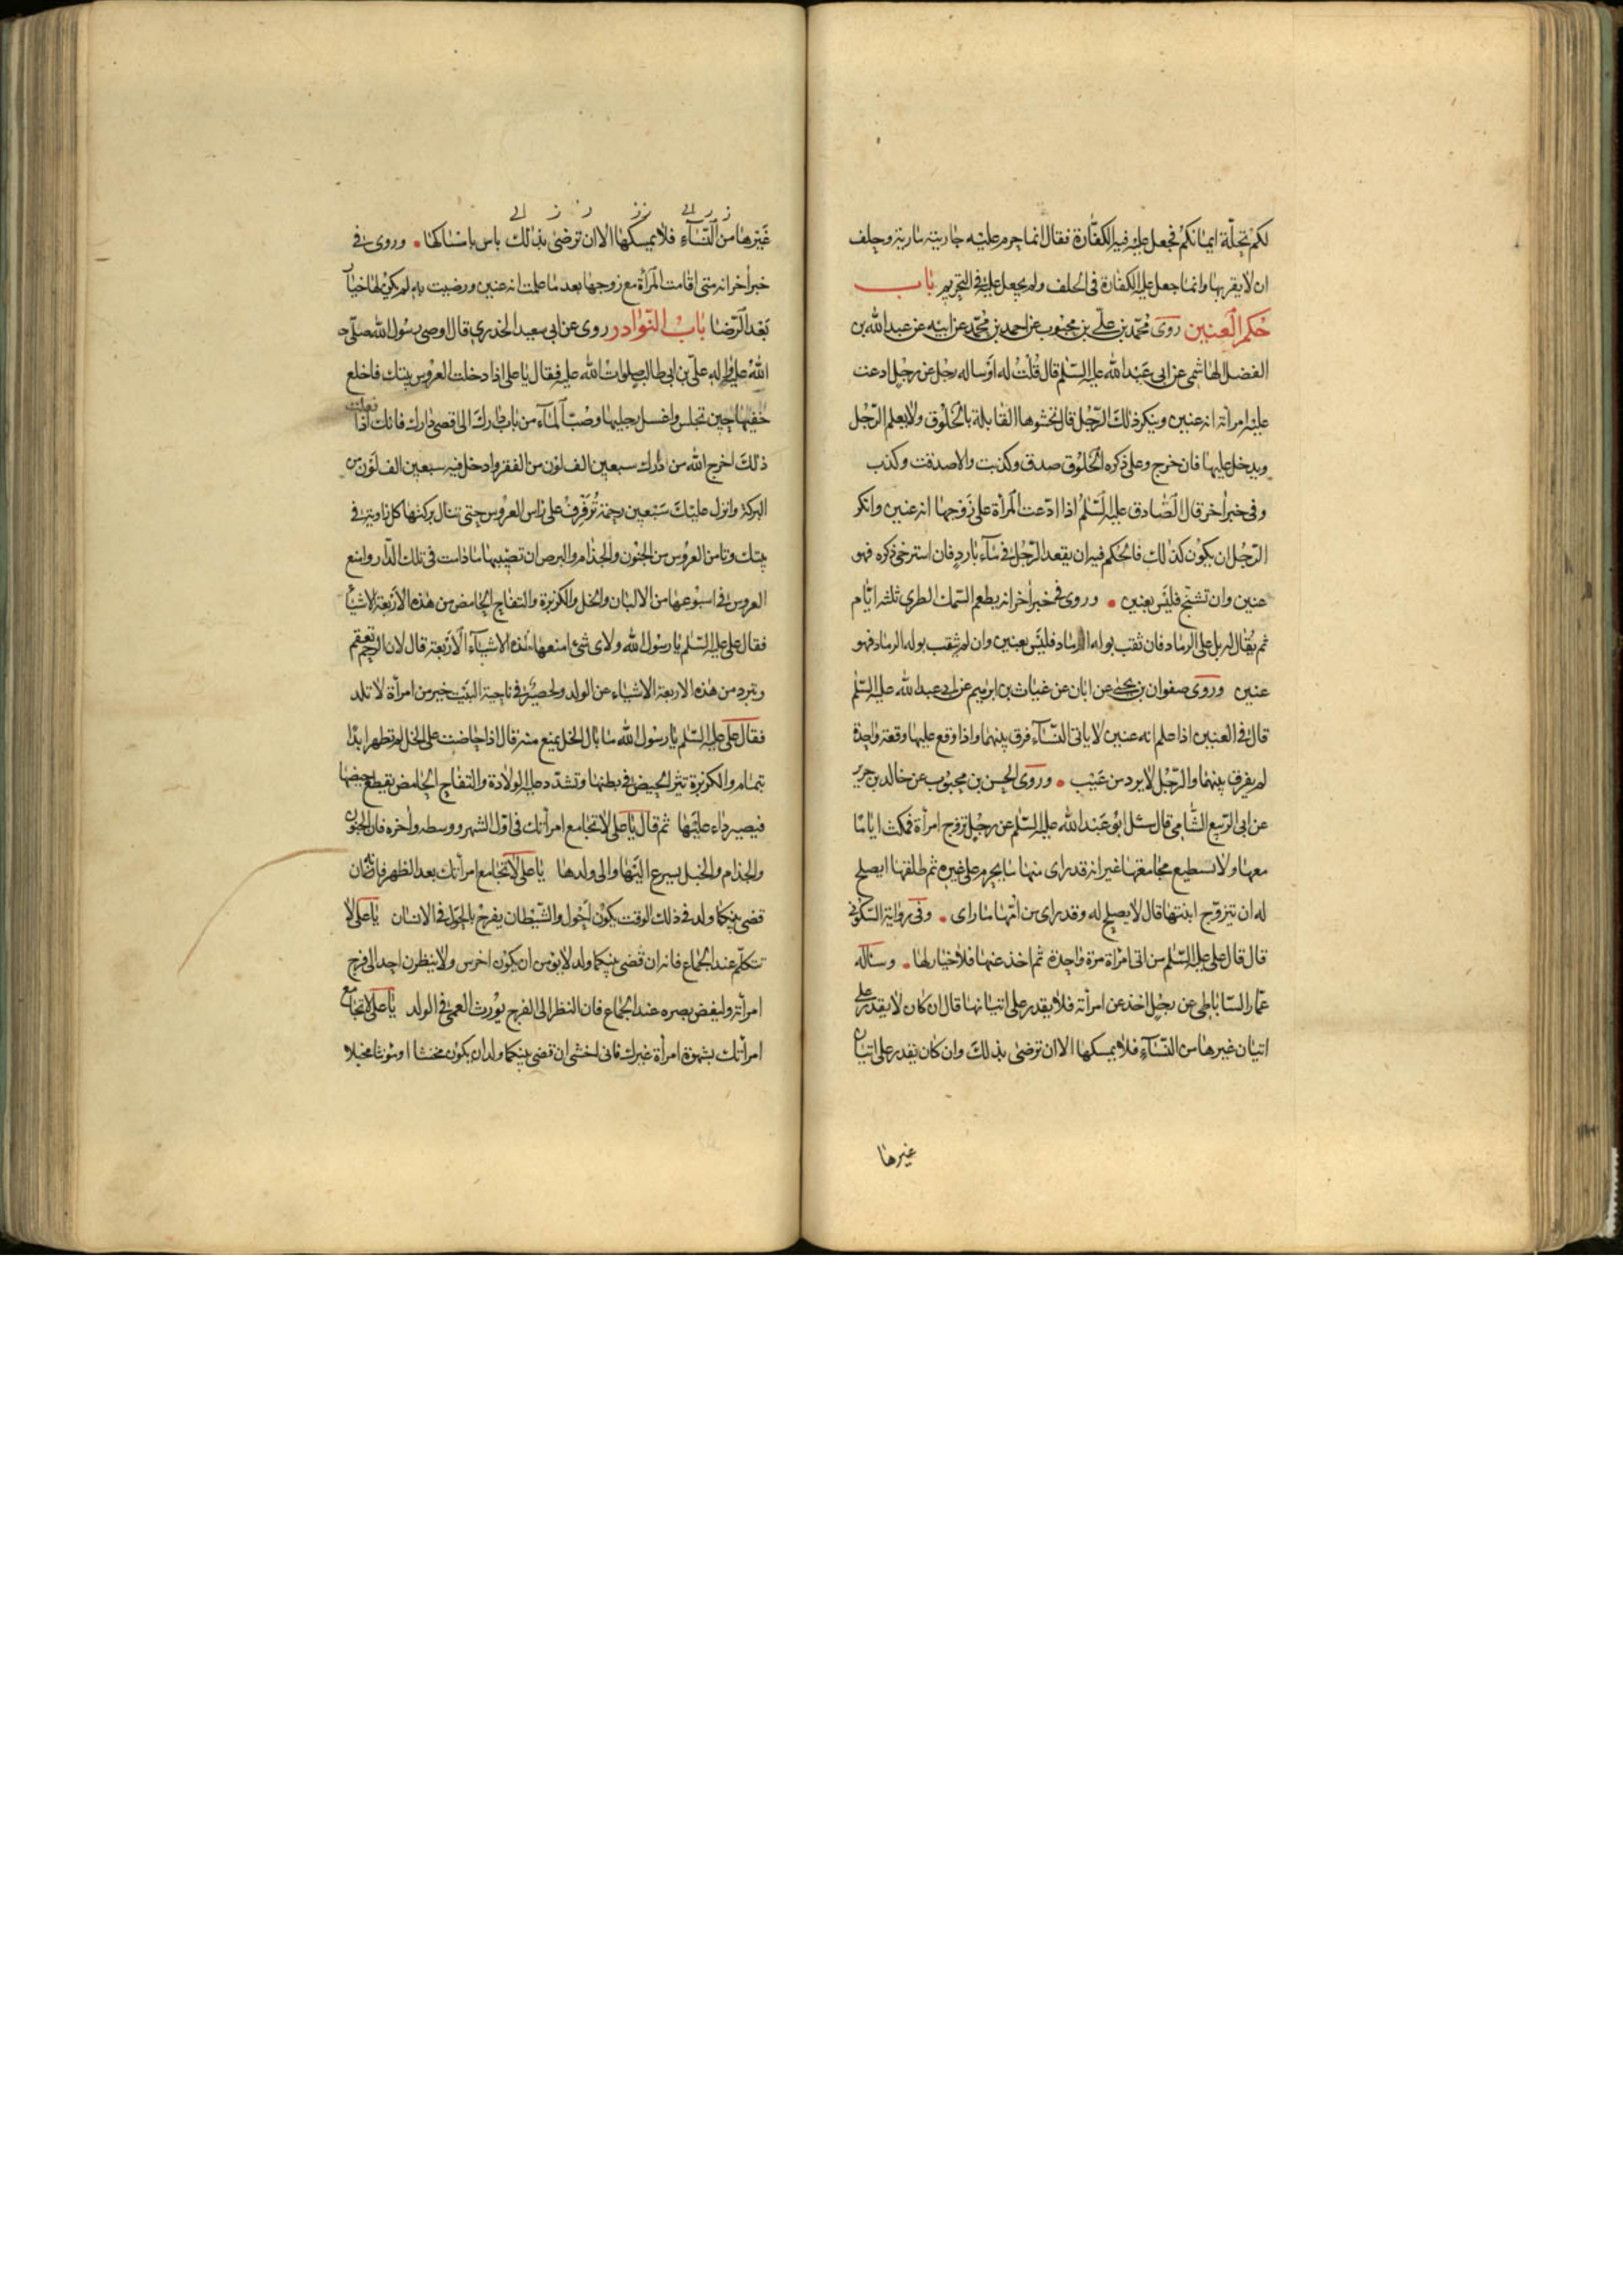 لكم تحلة ايمانكم فجعل عليه فيه الكفارة فقال انما حرم عليه جاريته مارية وحلف
ان لا يقربها وانما جعل عليه الكفارة فى الحلف ولم يجعل عليه فى التحريم باب
حكم العنين روى محمد بن على بن محبوب عن احمد بن محمد عن ابيه عن عبد الله بن
الفضل الهاشمى عن ابى عبد الله عليه السلم قال قلت له او ساله رجل عن رجل ادعت
عليه امرأته انه عنين وينكر ذلك الرجل قال تحشوها القابلة بالخلوق ولا يعلم الرجل
ويدخل عليها فان خرج وعلى ذكره الخلوق صدق وكذبت والا صدقت وكذب
وفى خبر اخر قال الصادق عليه السلم اذا ادعت المرأة على زوجها انه عنين وانكر
الرجل ان يكون كذلك فالحكم فيه ان يقعد الرجل فى ماء بارد فان استرخى ذكره فهو
عنين وان تشنج فليس بعنين وروى فى خبر اخر انه يطعم السمك الطرى ثلثه ايام
ثم يقال له بل على الرماد فان ثقب بوله الرماد فليس بعنين وان لم يثقب بوله الرماد فهو
عنين وروى صفوان بن يحيى عن ابان عن غياث بن ابرهيم عن ابى عبد الله عليه السلم
قال فى العنين اذا علم انه عنين لا ياتى النساء فرق بينهما واذا وقع عليها وقعة واحدة
لم يفرق بينهما والرجل لا يرد من عيب وروى الحسن بن محبوب عن خالد بن جرير
عن ابى الربيع الشامى قال سئل ابو عبد الله عليه السلم عن رجل تزوج امرأة فمكث اياما
معها ولا تسطيع مجامعتها غير انه قد راى منها ما يحرم على غيره ثم طلقها ايصلح
له ان يتزوج ابنتها قال لا يصلح له وقد راى من امها ما راى وفى رواية السكونى
قال قال على عليه السلم من اتى امراة مرة واحدة ثم اخذ عنها فلا خيار لها وساله
عمار الساباطى عن رجل اخذ عن امرأته فلا يقدر على اتيانها قال ان كان لا يقدر على
اتيان غيرها من النساء فلا يمسكها الا ان ترضى بذلك وان كان يقدر على اتيان
غيرها
غيرها من النساء فلا يمسكها الا ان ترضى بذلك باس بامساكها وروى فى
خبر اخر انه متى اقامت المرأة مع زوجها بعد ما علمت انه عنين ورضيت به لم يكن لها خيار
بعد الرضا باب النوادر روى عن ابى سعيد الخدرى قال اوصى رسول الله صلى
الله عليه واله على بن ابى طالب صلوات الله عليه فقال يا على اذا دخلت العروس بيتك فاخلع
خفيها حين تجلس واغسل رجليها وصب الماء من باب دارك الى اقصى دارك فانك اذا فعلت
ذلك اخرج الله من دارك سبعين الف لون من الفقر وادخل فيه سبعين الف لون من
البركة وانزل عليك سبعين رحمة ترفرف على راس العروس حتى تنال بركتها كل زاوية فى
بيتك وتامن العروس من الجنون والجذام والبرص ان تصيبها ما دامت فى تلك الدار وامنع
العروس فى اسبوعها من الالبان والخل والكزبرة والتفاح الحامض من هذه الاربعة الاشياء
فقال على عليه السلم يا رسول الله ولاى شئ امنعها هذه الاشياء الاربعة قال لان الرحم تعقم
وتبرد من هذه الاربعة الاشياء عن الولد ولحصير فى ناحية البيت خير من امرأة لا تلد
فقال على عليه السلم يا رسول الله ما بال الخل يمنع منه قال اذا حاضت على الخل لم تطهر ابدا
بتمام والكزبرة تثير الحيض فى بطنها وتشدد عليها الولادة والتفاح الحامض يقطع حيضها
فيصير داء عليها ثم قال يا على لا تجامع امرأتك فى اول الشهر ووسطه واخره فان الجنون
والجذام والخبل يسرع اليها والى ولدها يا على لا تجامع امرأتك بعد الظهر فانه ان
قضى بينكما ولد فى ذلك الوقت يكون احول والشيطان يفرح بالحول فى الانسان يا على لا
تتكلم عند الجماع فانه ان قضى بينكما ولد لا يؤمن ان يكون اخرس ولا ينظرن احد الى فرج
امرأته وليغض بصره عند الجماع فان النظر الى الفرج يورث العمى فى الولد يا على لا تجامع
امرأتك بشهوة امرأة غيرك فانى اخشى ان قضى بينكما ولد ان يكون مخنثا او مؤنثا مخبلا